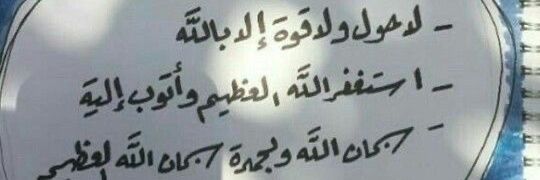 - لا حول ولا قوة إلا بالله
- استغفر الله العظيم وأتوب إلية
- سبحان الله وبحمدة سبحان الله العظيم